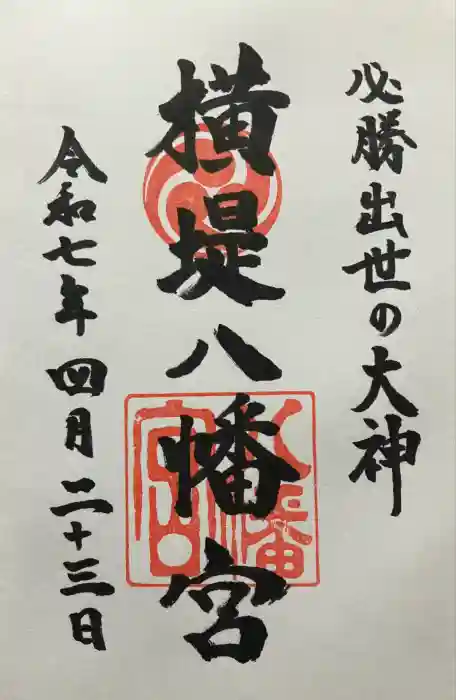 必勝出世の大神
横堤八幡宮
八幡宮
令和七年四月二十三日